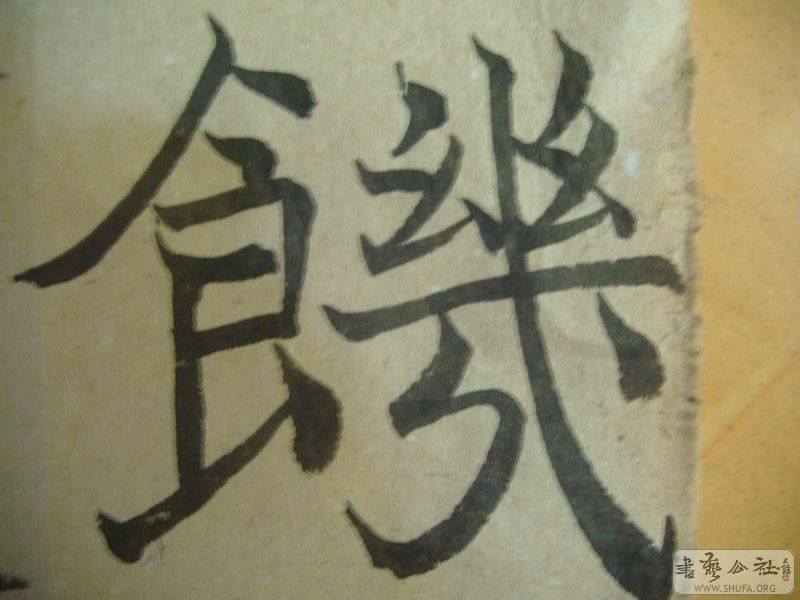 饑
書藝公社
WWW.SHUFA.ORG